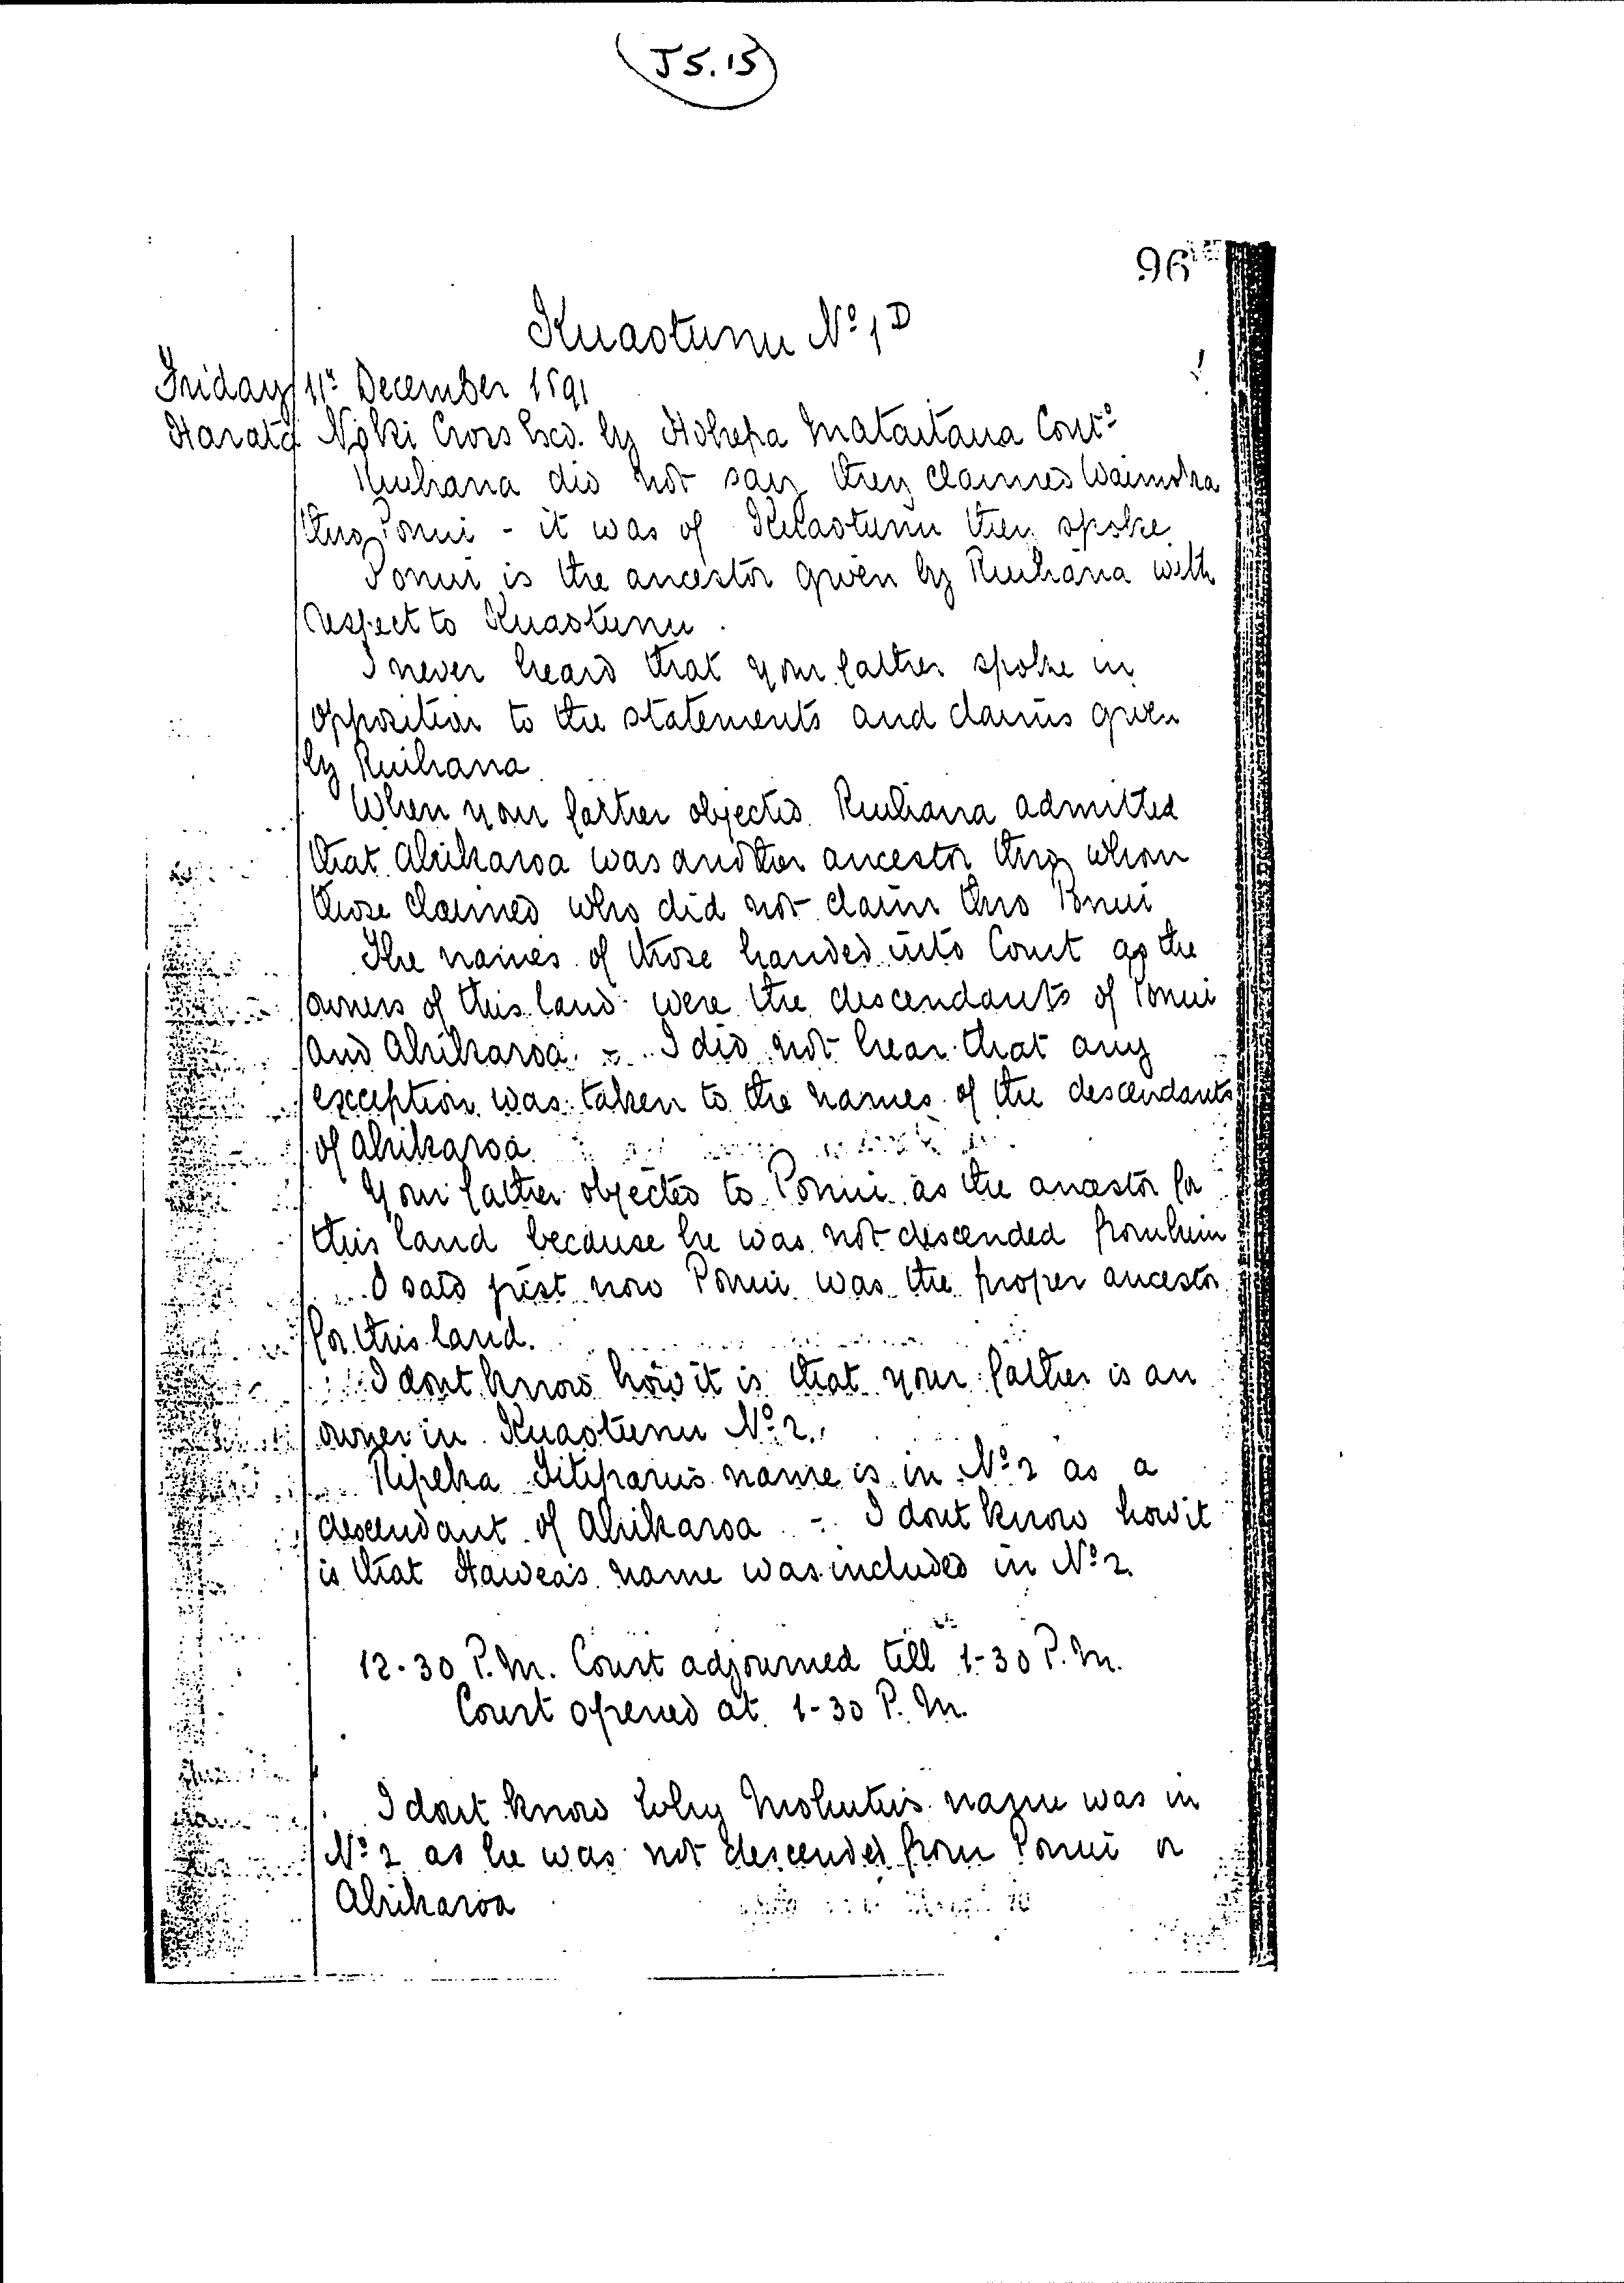 J5.15
96
Kuaotunu No 1D
Friday 11th December 1891
Harata Noki Cross Exd. by Hohepa Mataitaua Contd
Ruihana did not say they claimed
thro Ponui - it was of Kuaotunu they spoke
Ponui is the ancestor given by Ruihana with
respect to Kuaotunu.
I never heard that your father spoke in
opposition to the statements and claims given
by Ruihana
When your father objected Ruihana admitted
that Ahikaroa was another ancestor thro whom
those claimed who did not claim thro Ponui
The names of those handed into Court as the
owners of this land were the descendants of Ponui
and Ahikaroa. - I did not hear that any
exception was taken to the names of the descendants
of Ahikaroa
Your father objected to Ponui as the ancestor for
this land because he was not descended from him
I said just now Ponui was the proper ancestor
for this land.
I dont know how it is that your father is an
owner in Kuaotunu No 2.
Ripeka Titiparu's name is in No 2 as a
descendant of Ahikaroa - I dont know how it
is that Hawea's name was included in No 2.
12-30 P.M. Court adjourned till 1-30 P.M.
Court opened at 1-30 P.M.
I dont know why name was in
No 2 as he was not descended from Ponui or
Ahikaroa